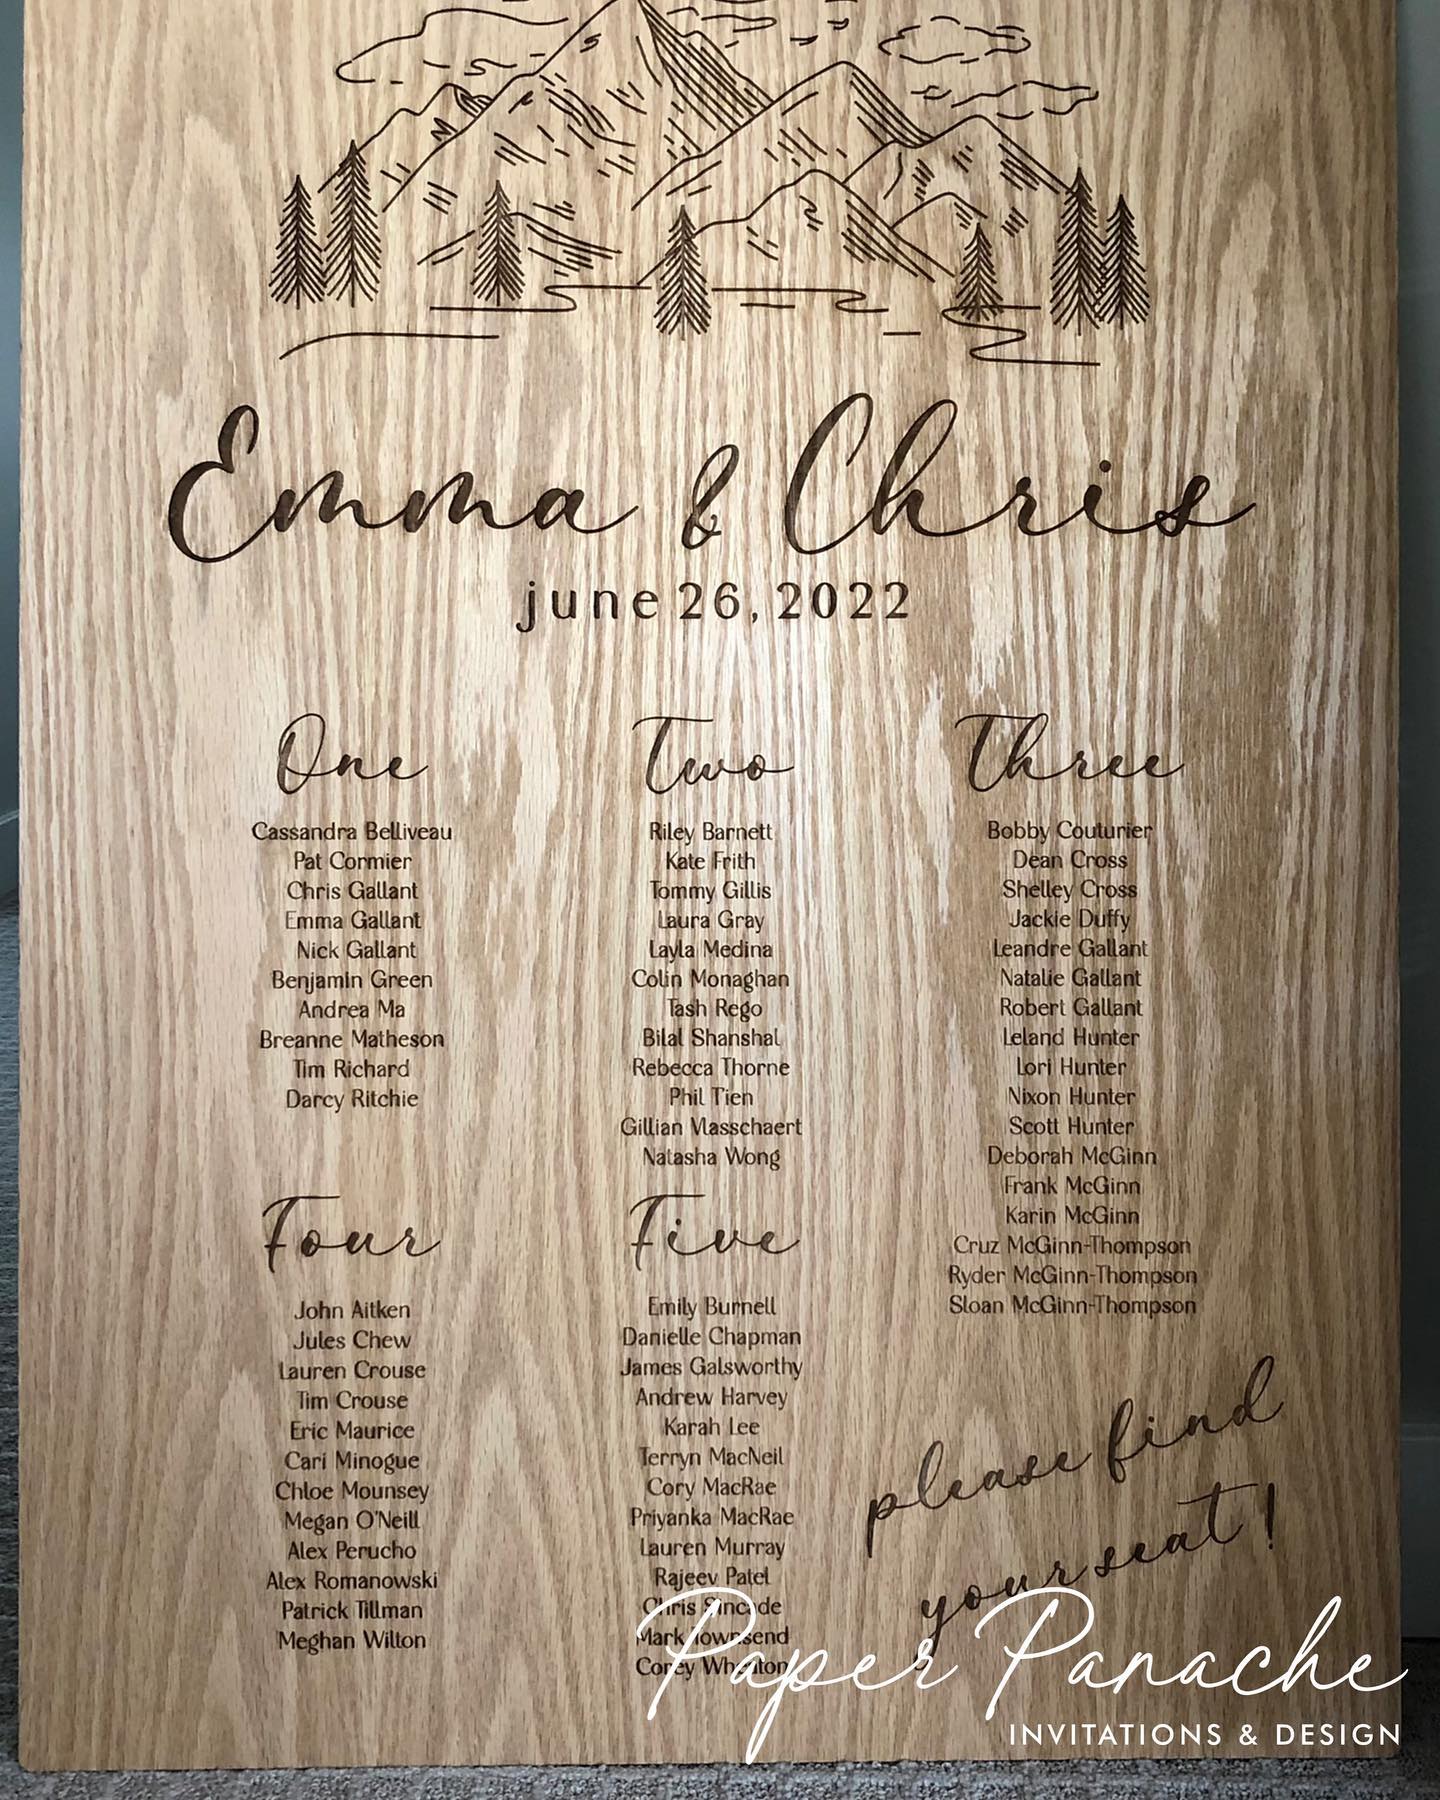 Emma & Chris
june 26, 2022
One
Cassandra Belliveau
Pat Cormier
Chris Gallant
Emma Gallant
Nick Gallant
Benjamin Green
Andrea Ma
Breanne Matheson
Tim Richard
Darcy Ritchie
Two
Riley Barnett
Kate Frith
Tommy Gillis
Laura Gray
Layla Medina
Colin Monaghan
Tash Rego
Bilal Shanshal
Rebecca Thorne
Phil Tien
Gillian Vlasschaert
Natasha Wong
Three
Bobby Couturier
Dean Cross
Shelley Cross
Jackie Duffy
Leandre Gallant
Natalie Gallant
Robert Gallant
Leland Hunter
Lori Hunter
Nixon Hunter
Scott Hunter
Deborah McGinn
Frank McGinn
Karin McGinn
Cruz McGinn-Thompson
Ryder McGinn-Thompson
Sloan McGinn-Thompson
Four
John Aitken
Jules Chew
Lauren Crouse
Tim Crouse
Eric Maurice
Cari Minogue
Chloe Mounsey
Megan O'Neill
Alex Perucho
Alex Romanowski
Patrick Tillman
Meghan Wilton
Five
Emily Burnell
Danielle Chapman
James Galsworthy
Andrew Harvey
Karah Lee
Terryn MacNeil
Cory MacRae
Priyanka MacRae
Lauren Murray
Rajeev Patel
Chris
Mark Townsend
Corey Wheaton
please find
your seat!
Paper Panache
INVITATIONS & DESIGN